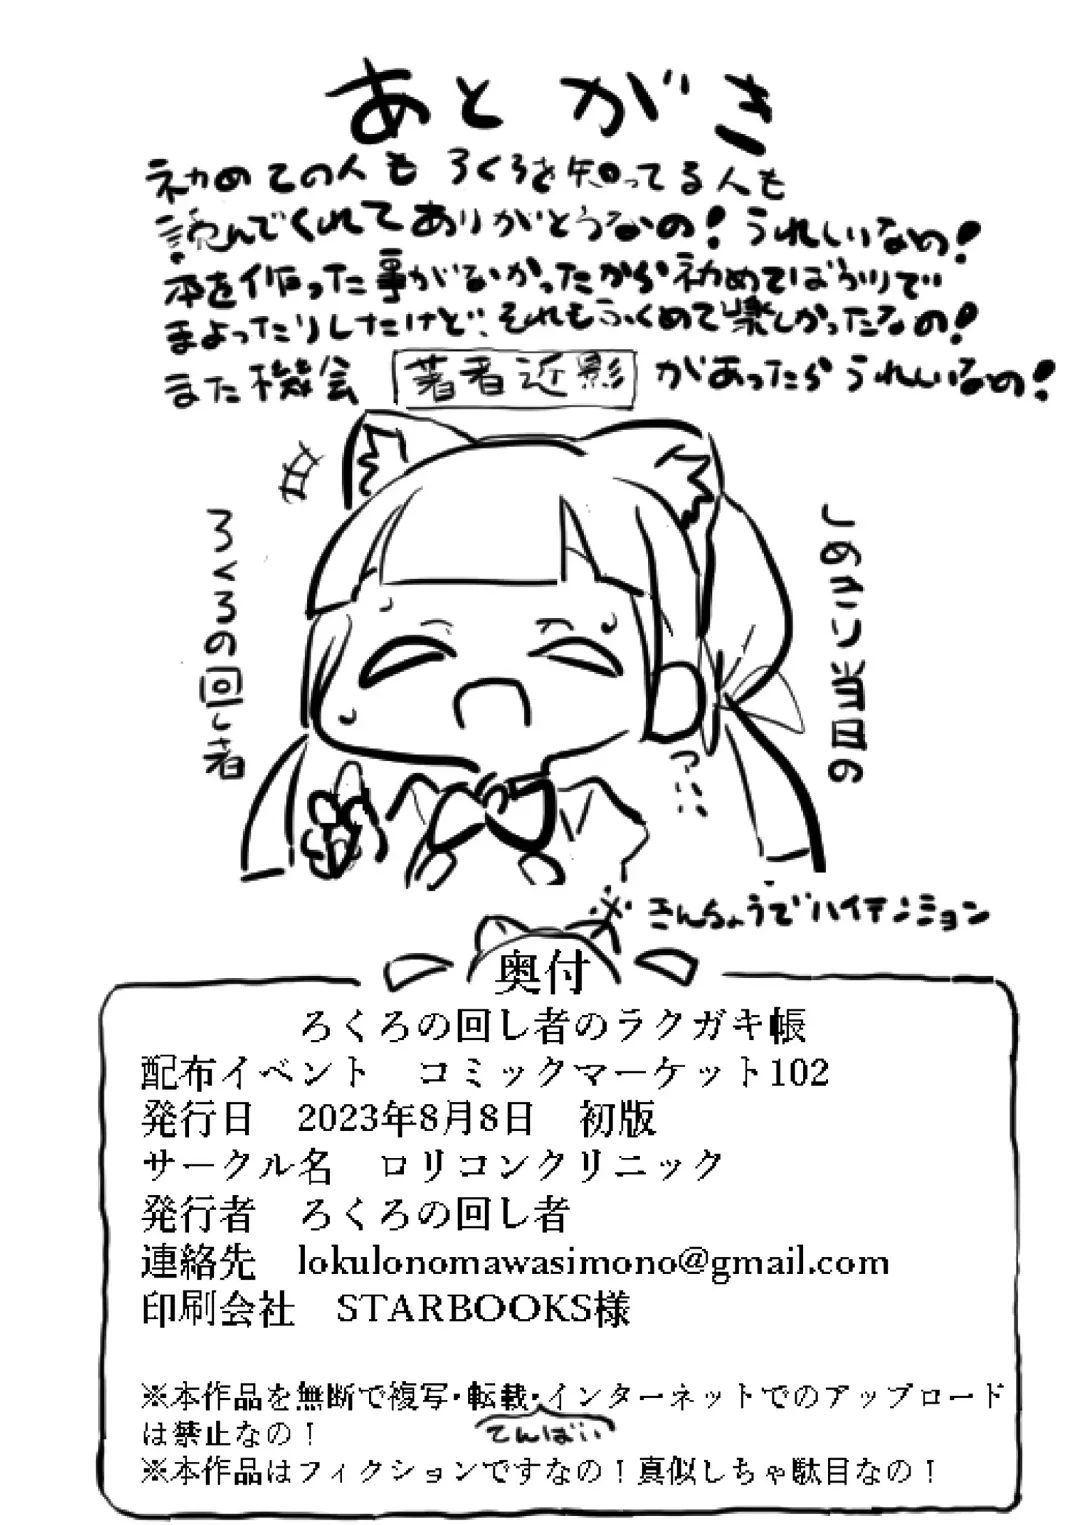 あとがき
初めての人も ろくろを知ってる人も
読んでくれてありがとうなの！うれしいなの！
本を作った事がなかったから初めてばかりで
まよったりしたけど、それもふくめて楽しかったなの！
また機会があったらうれしいなの！
著者近影
しめきり当日の
ろくろの回し者
※きんちょうでハイテンション
奥付
ろくろの回し者のラクガキ帳
配布イベント　コミックマーケット102
発行日　2023年8月8日　初版
サークル名　ロリコンクリニック
発行者　ろくろの回し者
連絡先　lokulonomawasimono@gmail.com
印刷会社　STARBOOKS様
※本作品を無断で複写・転載・インターネットでのアップロード
てんばい
は禁止なの！
※本作品はフィクションですなの！真似しちゃ駄目なの！